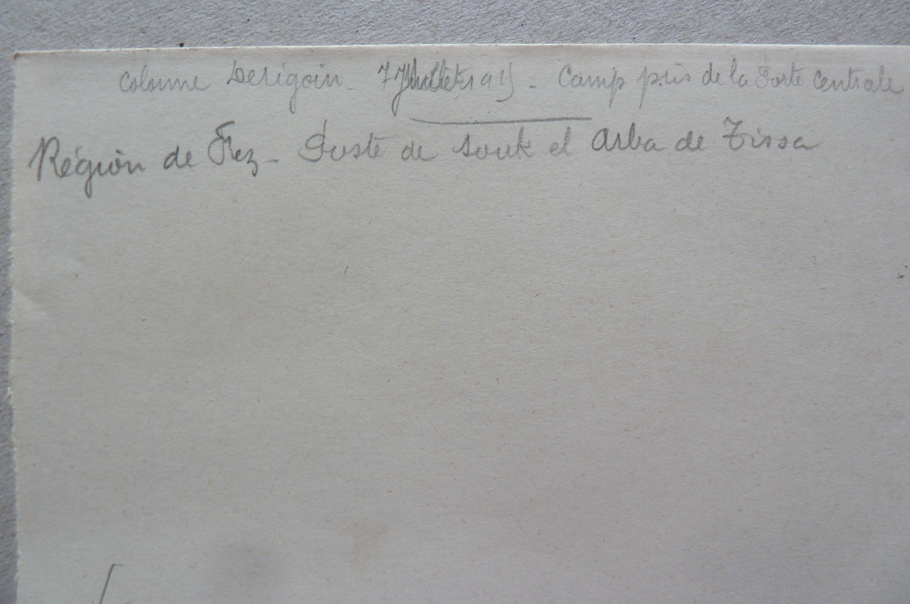 Colonne Derigoin - 7 Juillet 1915 - Camp pris de la Porte Centrale
Région de Fez - Poste de Souk el Arba de Tissa